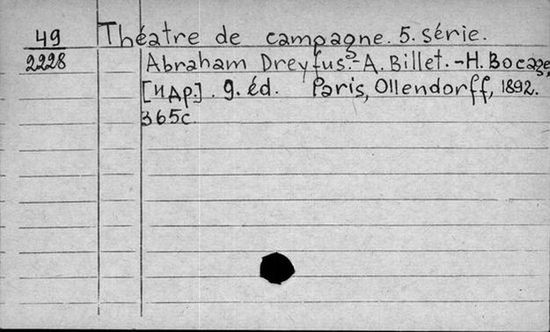 49 Théatre de campagne. 5. série.
2228 Abraham Dreyfus.-A. Billet.-H. Bocage,
[и др.]. 9. éd. Paris, Ollendorff, 1892.
365с.